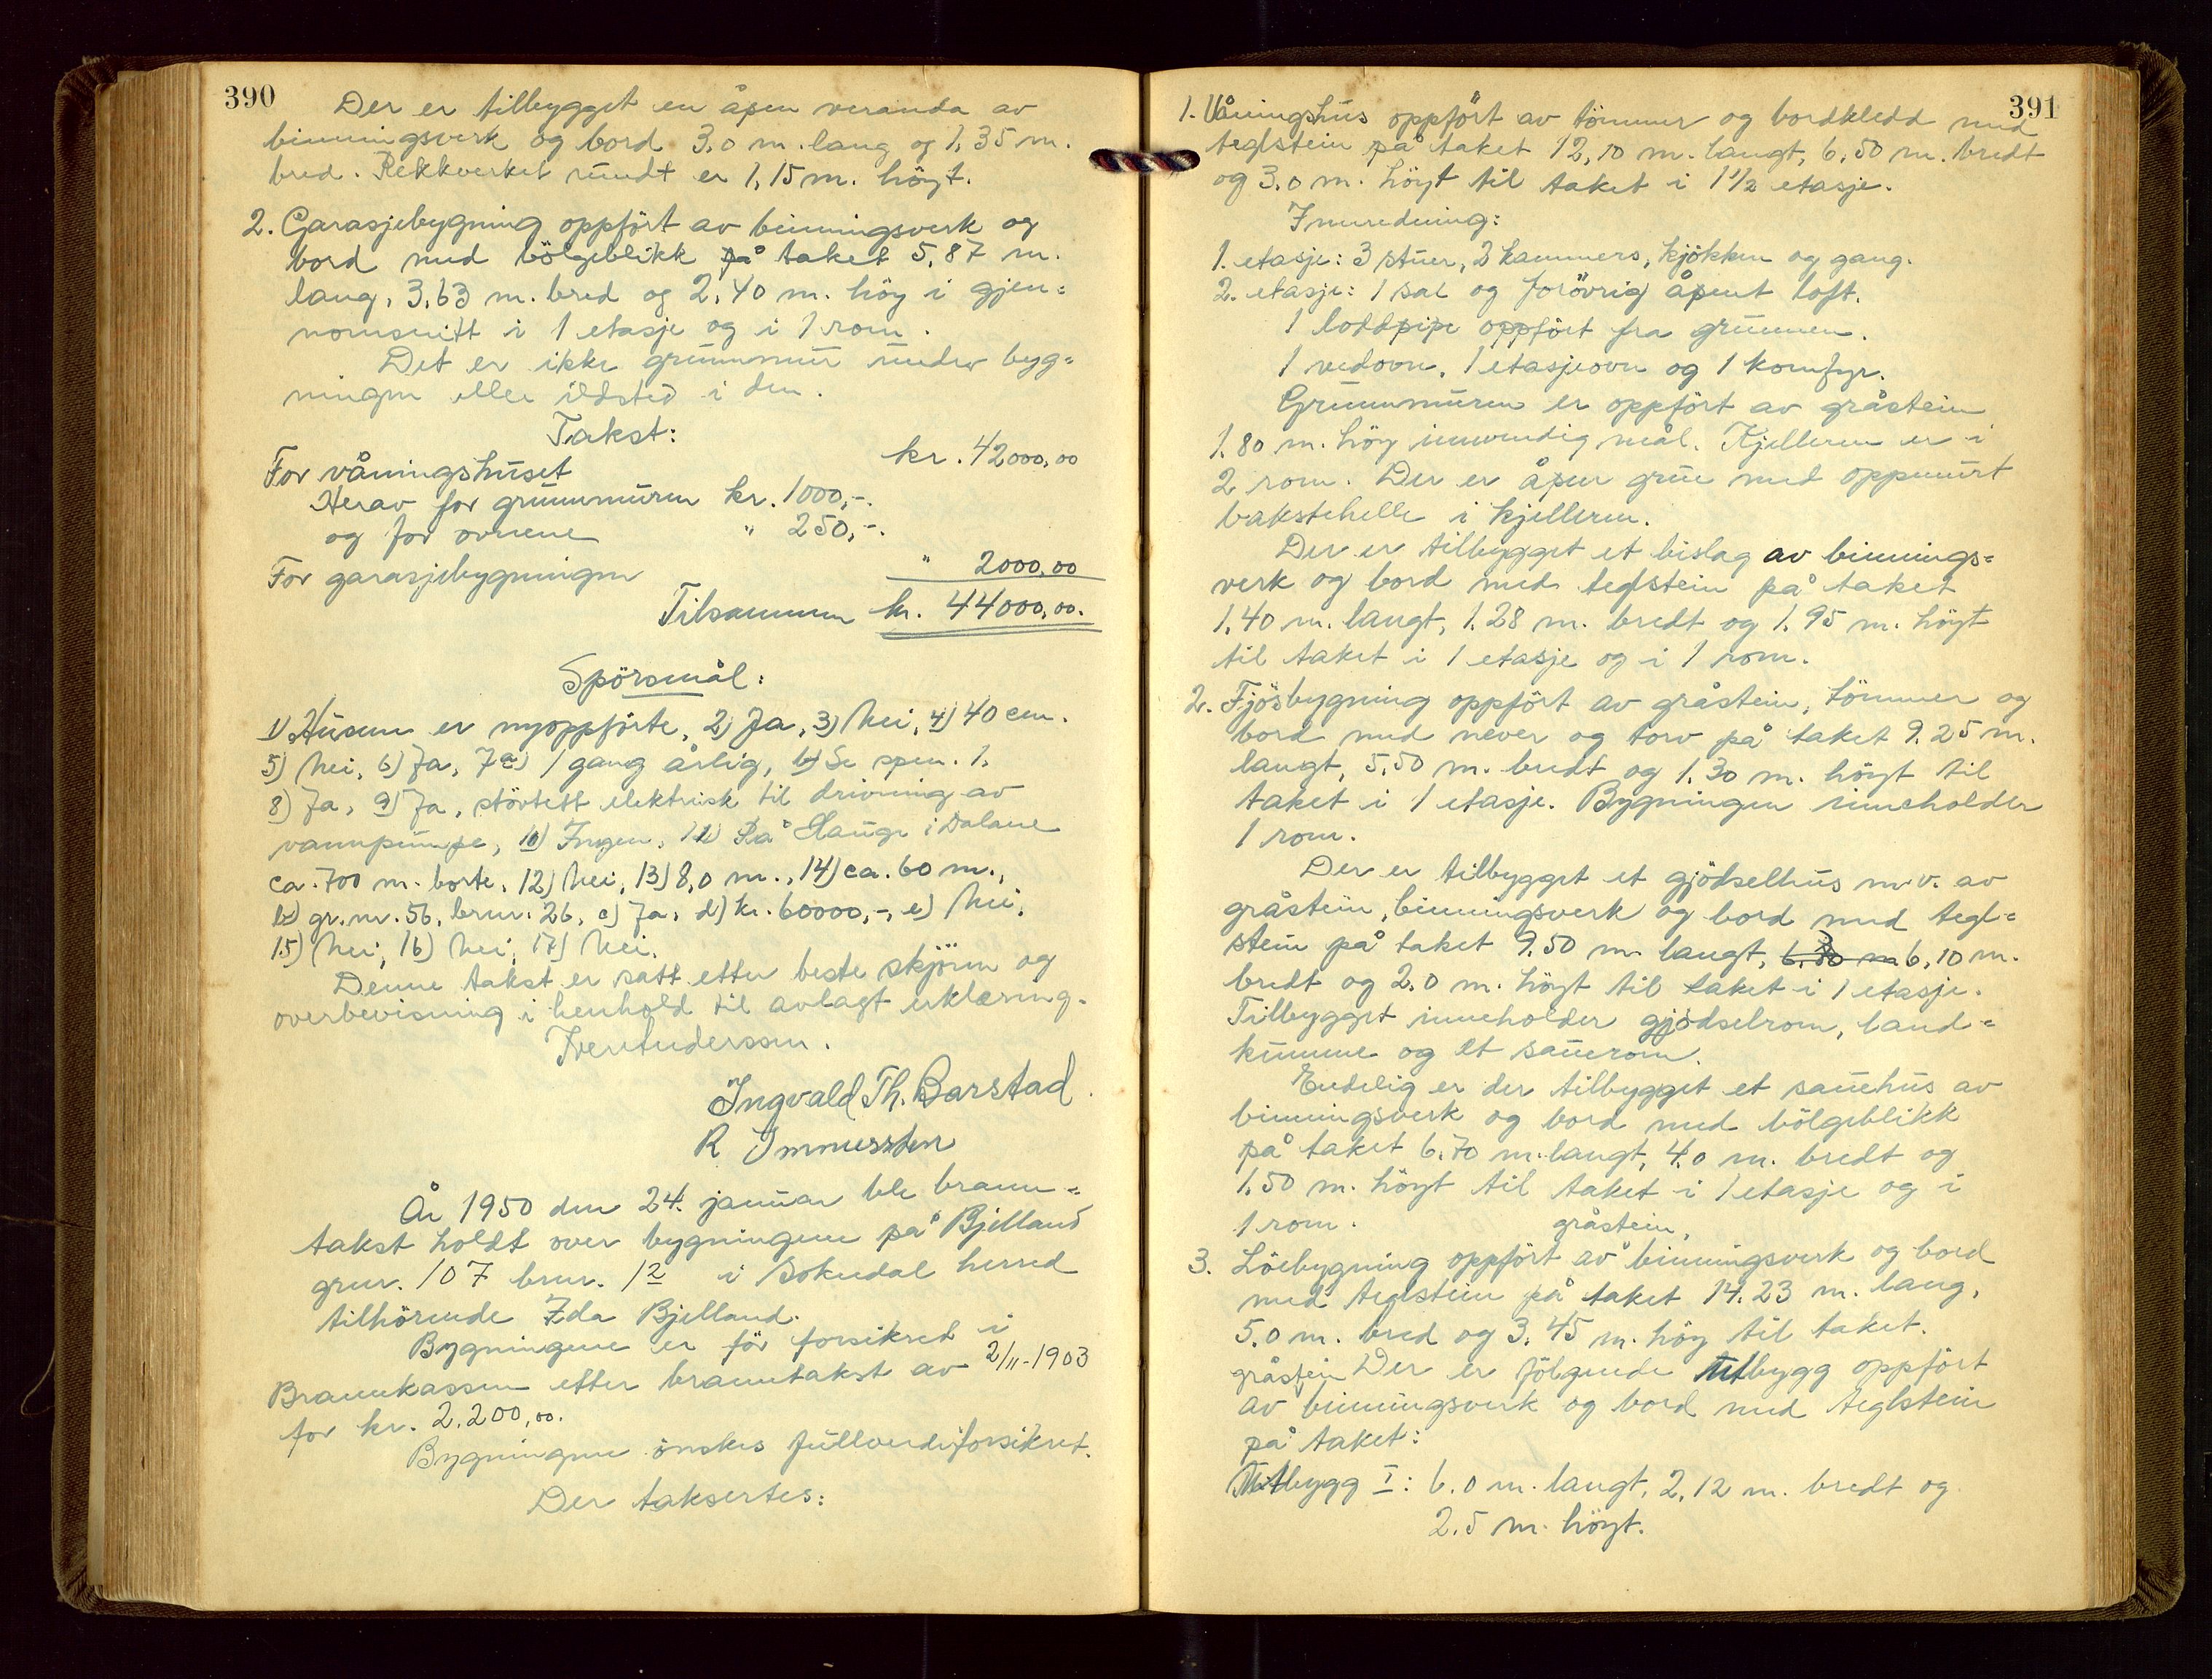 390
Der er tilbygget en åpen veranda av
binningsverk og bord 3,0 m. lang og 1,35 m.
bred. Rekkverket rundt er 1,15 m. höyt.
2. Garasjebygning oppfört av binningsverk og
bord med bölgeblikk på taket 5,87 m.
lang, 3,63 m. bred og 2,40 m. höy i gjen=
nomsnitt i 1 etasje og i 1 rom.
Det er ikke grunnmur under byg=
ningen eller ildsted i den.
Takst:
For våningshuset kr. 42000,00
Herav for grunnmuren kr. 1000,-.
og for ovnene " 250,-.
For garasjebygningen " 2000,00
Tilsammen kr. 44000,00.
Spörsmål:
1) Husene er nyoppförte, 2) Ja, 3) Nei, 4) 40 cm.
5) Nei, 6) Ja, 7a) 1 gang årlig, b) Se spm. 1.
8) Ja, 9) Ja, stövtett elektrisk til drivning av
vannpumpe, 10) Ingen, 11) På Hauge i Dalane
ca. 700 m. borte, 12) Nei, 13) 8,0 m., 14) ca. 60 m.,
b) gr. nr. 56, brnr. 26, c) Ja, d) kr. 60000,-, e) Nei,
15) Nei, 16) Nei, 17) Nei.
Denne takst er satt etter beste skjönn og
overbevisning i henhold til avlagt erklæring.
Iver Anderssen.
Ingvald Th. Barstad.
R
År 1950 den 24. januar ble brann=
takst holdt over bygningene på Bjelland
grnr. 107 brnr. 12 i Sokndal herred
tilhörende Ida Bjelland.
Bygningene er för forsikret i
Brannkassen efter branntakst av 2/11-1903
for kr. 2.200,00.
Bygningene önskes fullverdiforsikret.
Der taksertes:
391
1. Våningshus oppfört av tömmer og bordkledd med
teglstein på taket 12,10 m. langt, 6,50 m. bredt
og 3.0 m. höyt til taket i 1 1/2 etasje.
Innredning:
1. etasje: 3 stuer, 2 kammers, kjökken og gang.
2. etasje: 1 sal og forövrig åpent loft.
1 loddpipe oppfört fra grunnen.
1 vedovn, 1 etasjeovn og 1 komfyr.
Grunnmuren er oppfört av gråstein
1,80 m. höy innvendig mål. Kjelleren er i
2 rom. Der er åpen grue med oppmurt
bakstehelle i kjelleren.
Der er tilbygget et bislag av binnings=
verk og bord med teglstein på taket
1,40 m. langt, 1.28 m. bredt og 1,95 m. höyt
til taket i 1 etasje og i 1 rom.
2. Fjösbygning oppfört av gråstein, tömmer og
bord med never og torv på taket 9.25 m.
langt, 5,50 m. bredt og 1,30 m. höyt til
taket i 1 etasje. Bygningen inneholder
1 rom.
Der er tilbygget et gjödselhus m.v. av
gråstein, binningsverk og bord med tegl=
stein på taket 9.50 m langt, 6,10 m.
bredt og 2.0 m. höyt til taket i 1 etasje.
Tilbygget inneholder gjödselrom, land=
kumme og et sauerom.
Endelig er der tilbygget et sauehus av
binningsverk og bord med bölgeblikk
på taket 6,70 m. langt, 4,0 m. bredt og
1,50 m. höyt til taket i 1 etasje og i
1 rom.
gråstein,
3. Löebygning oppfört av binningsverk og bord
med teglstein på taket 14.23 m. lang,
5.0 m. bred og 3.45 m. höy til taket.
gråstein Der er fölgende utbygg oppfört
av binningsverk og bord med teglstein
på taket:
Utbygg I: 6.0 m. langt, 2,12 m. bredt og
2.5 m. höyt.